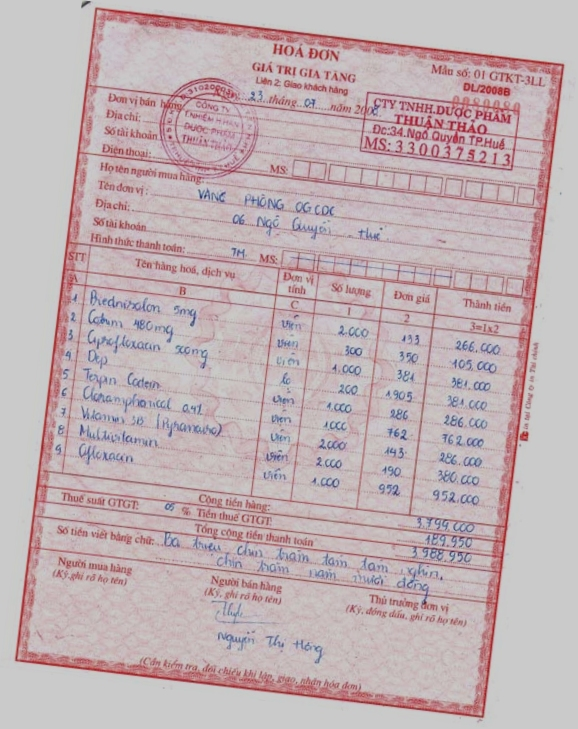 HOÁ ĐƠN
GIÁ TRỊ GIA TĂNG
Liên 2: Giao khách hàng
Mẫu số: 01 GTKT-3LL
DL/2008B
23 tháng 07 năm 2008
Đơn vị bán hàng
Địa chỉ:
Số tài khoản
Điện thoại: MS:
CÔNG TY
T.NHIỆM H.HẠN
DƯỢC PHẨM
THUẬN THẢO
CTY TNHH.DƯỢC PHẨM
THUẬN THẢO
Đc:34.Ngô Quyền TP.Huế
MS: 3300375213
Họ tên người mua hàng
Tên đơn vị: VĂNG PHÒNG OGCDC
Địa chỉ: 06 Ngô Quyền Huế
Số tài khoản
Hình thức thanh toán: TM MS:
STT Tên hàng hoá, dịch vụ Đơn vị tính Số lượng Đơn giá Thành tiền
A B C 1 2 3=1x2
1 Prednisolon 5mg viên 2.000 133 266.000
2 Cotrim 480mg viên 300 350 105.000
3 Ciprofloxacin 500mg viên 1.000 381 381.000
4 Dep lọ 200 1905 381.000
5 Terpin Codein viên 1.000 286 286.000
6 Cloramphenicol 0.4% 1000 762 762.000
7 Vitamin viên 2000 143 286.000
8 Multivitamin viên 2000 190 380.000
9 Ofloxacin viên 1.000 952 952.000
Cộng tiền hàng: 3.799.000
Thuế suất GTGT: 05 % Tiền thuế GTGT: 189.950
Tổng cộng tiền thanh toán 3.988.950
Số tiền viết bằng chữ: Ba triệu chín trăm tám tám nghìn,
chín trăm năm mươi đồng
Người mua hàng
(Ký, ghi rõ họ tên)
Người bán hàng
(Ký, ghi rõ họ tên)
Thủ trưởng đơn vị
(Ký, đóng dấu, ghi rõ họ tên)
Nguyễn Thị Hồng
(Cần kiểm tra, đối chiếu khi lập, giao, nhận hóa đơn)